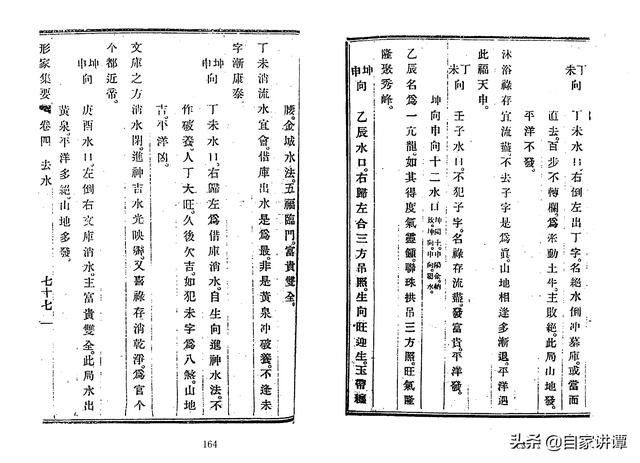 丁未向 丁未水口右倒左出丁字。名絕水倒冲墓庫。或當面
直去。百步不轉欄。為牽動土牛。主敗絕。此局山地發。
平洋不發。
沐浴祿存宜流盡。不去子字是為眞。山地相逢多漸退。平洋遇
此福天申。
丁未向 壬子水口。不犯子字。名祿存流盡。發富貴。平洋發。
坤向申向十二水口
乙辰名為一亢龍。如其得度氣靈鍾。聯珠拱吊三方照。旺氣隆
隆發秀峰。
坤申向 乙辰水口。右歸左合三方吊照。生向旺迎生。玉帶纏
腰。金城水法。五福臨門。富貴雙全。
丁未消流水宜會。借庫出水是為最。非是黃泉冲破養。不逢未
字漸康泰。
坤申向 丁未水口。右歸左為借庫消水。自生向進神水法。不
作破養。人丁大旺。久後欠吉。如犯未字為八煞。山地
吉。平洋凶。
文庫之方消水閉。進神吉水光映。又喜祿存消乾淨。為官个
个都近帝。
坤申向 庚酉水口。左倒右文庫消水。主富貴雙全。此局水出
黃泉。平洋多絕。山地多發。
形家集要 卷四 去水 七十七
164
头条 @自家讲谭